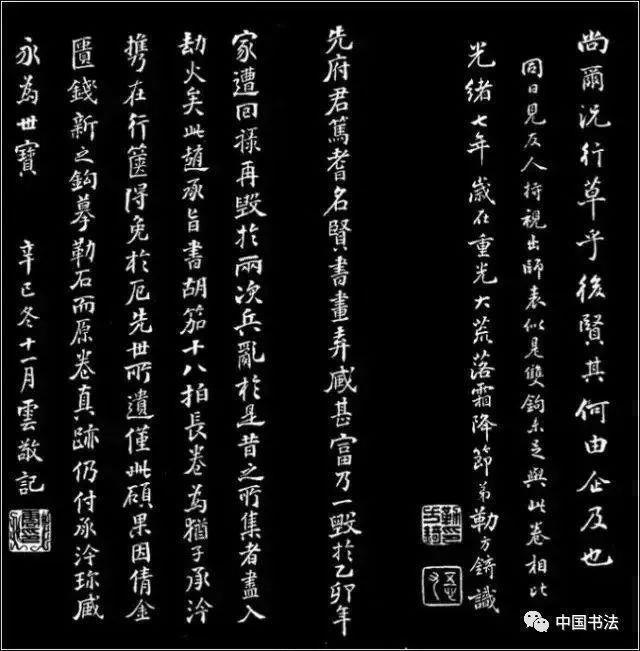 尚爾況行草乎後賢其何由企及也
同日見友人持視出師表似是雙鉤未足與此卷相比
光緒七年歲在重光大荒落霜降節弟勒方錡識
先府君篤耆名賢書畫弆藏甚富乃一毀於乙卯年
家遭回祿再毀於兩次兵亂於是昔之所集者盡入
劫火矣此趙承旨書胡笳十八拍長卷為猶子承泠
攜在行篋得免於厄先世所遺僅此碩果因倩金
匱錢新之鉤摹勒石而原卷真跡仍付承泠珍藏
永為世寶 辛巳冬十一月雲敬記
中国书法